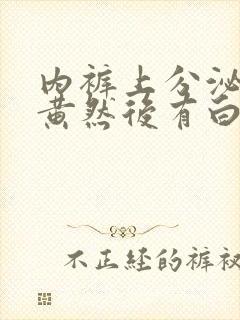 内裤上分泌
黄然后有白
不正经的裤衩